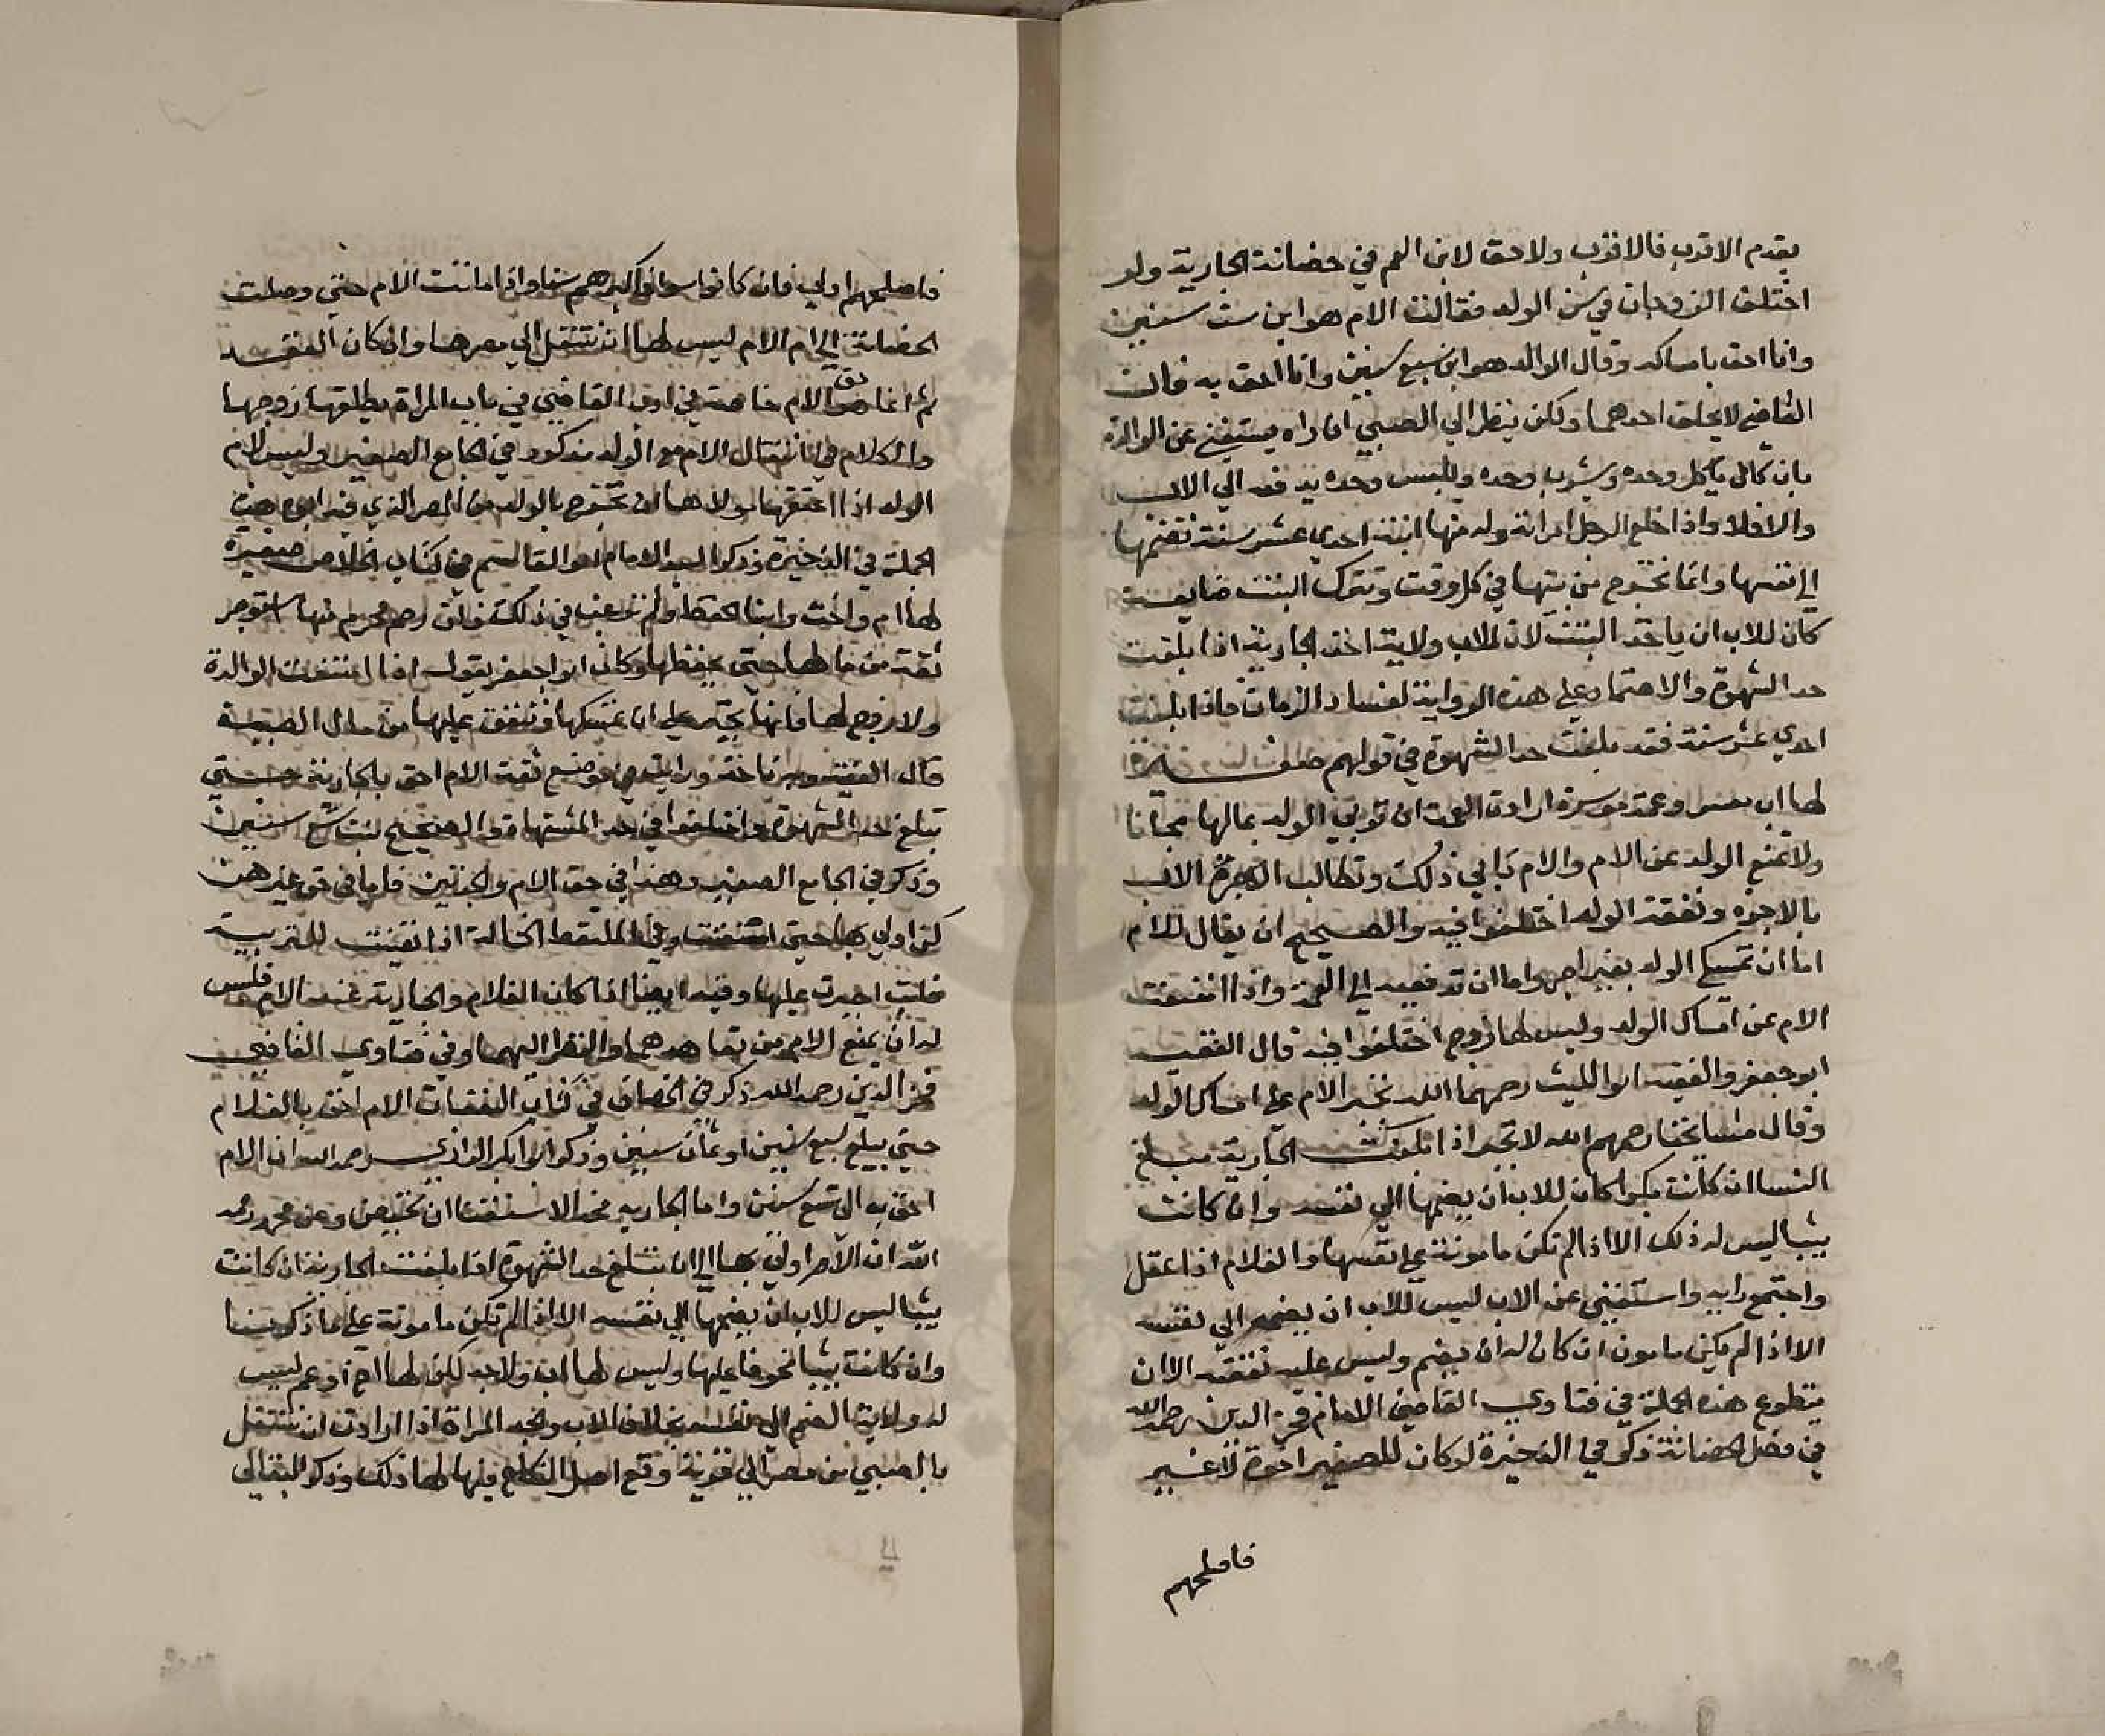 يقدم الاقرب فالاقرب ولا حق لابن العم في حضانة الجارية ولو
اختلف الزوجان في سن الولد فقالت الام هو ابن ست سنين
وانا احق بامساكه وقال الوالد هو ابن سبع سنين وانا احق به فان
القاضي لا يحلف احدهما ولكن ينظر الي الصبي ان راه يستغني عن الوالدة
بان كان ياكل وحده ويشرب وحده ويلبس وحده يدفعه الي الاب
والا فلا واذا خلع الرجل امراته وله منها ابنة احدي عشر سنة فضمتها
الي نفسها وانما تخرج من بيتها في كل وقت وتترك البنت ضايعة
كان للاب ان ياخذ البنت لان للاب ولاية اخذ الجارية اذا بلغت
حد الشهوة والاعتماد علي هذه الرواية لفساد الزمان فاذا بلغت
احدي عشر سنة فقد بلغت حد الشهوة في قولهم صغيرة
لها اب معسر وعمة موسرة ارادت العمة ان تربي الولد بمالها مجانا
ولا تمنع الولد عن الام والام تابي ذلك وتطالب الاجرة الاب
بالاجرة ونفقة الولد اختلفوا فيه والصحيح ان يقال للام
اما ان تمسكي الولد بغير اجر واما ان تدفعيه الي العمة واذا امتنعت
الام عن امساك الولد وليس لها زوج اختلفوا فيه قال الفقيه
ابو جعفر والفقيه ابو الليث رحمهما الله تجبر الام علي امساك الولد
وقال مشايخنا رحمهم الله لا تجبر اذا بلغت الجارية مبلغ
النسا ان كانت بكرا كان للاب ان يضمها الي نفسه وان كانت
ثيبا ليس له ذلك الا اذا لم تكن مامونة علي نفسها والغلام اذا عقل
واجتمع رايه واستغني عن الاب ليس للاب ان يضمه الي نفسه
الا اذا لم يكن مامون ان كان له ان يضم وليس عليه نفقته الا ان
يتطوع هذه الجملة في فتاوي القاضي الامام فخر الدين رحمه الله
في فصل الحضانة ذكر في الذخيرة لو كان للصغير اخوة
فاصلحهم
فاصلحهم اولي فان كانوا سوا فاكبرهم سنا واذا ماتت الام حتي وصلت
الحضانة الي ام الام ليس لها ان تنتقل الي مصرها وان كان العقد
ثم انما هو حق الام خاصة في ادب القاضي في باب المراة يطلقها زوجها
والكلام في انتقال الام مع الولد مذكور في الجامع الصغير وليس لام
الولد اذا اعتقها مولاها ان تخرج بالولد من المصر الذي فيه ابوه هذه
الجملة في الذخيرة وذكر السيد الامام ابو القاسم في كتاب الخلاص صغيرة
لها ام واخت وابتا الحفظ ولم ترغب في ذلك ذات رحم محرم منها استوجر
ثقة من مالها حتي يحفظها وكان ابو جعفر يقول اذا امتنعت الوالدة
ولا زوج لها فانها تجبر علي ان تمسكها وتنفق عليها من مال الصبية
قال الفقيه وبه ناخذ ورايت في موضع ثقة الام احق بالجارية حتي
تبلغ حد الشهوة واختلفوا في حد المشتهاة والصحيح بنت تسع سنين
وذكر في الجامع الصغير وهذا في حق الام والجدتين فاما في حق غيرهن
كن اولي بها حتي استغنت وفي الملتقط الخالة اذا تعينت للتربية
فابت اجبرت عليها وفيه ايضا اذا كان الغلام والجارية عند الام فليس
له ان يمنع الاب من تعاهدهما والنظر اليهما وفي فتاوي القاضي
فخر الدين رحمه الله ذكر في الخصاف في كتاب النفقات الام احق بالغلام
حتي يبلغ سبع سنين او ثمان سنين وذكر ابو بكر الرازي رحمه الله ان الام
احق به الي تسع سنين واما الجارية فحد الاستغنا ان تحيض وعن محمد رحمه
الله ان الام اولي بها الي ان تبلغ حد الشهوة اذا بلغت الجارية ان كانت
ثيبا ليس للاب ان يضمها الي نفسه الا اذا لم تكن مامونة علي ما ذكرنا
وان كانت ثيبا مخوفا عليها وليس لها اب ولا جد لكن لها اخ او عم ليس
له ولاية الضم الي نفسه بخلاف الاب والجد المراة اذا ارادت ان تنتقل
بالصبي من مصر الي قرية وقع اصل النكاح فيها لها ذلك وذكر البقالي